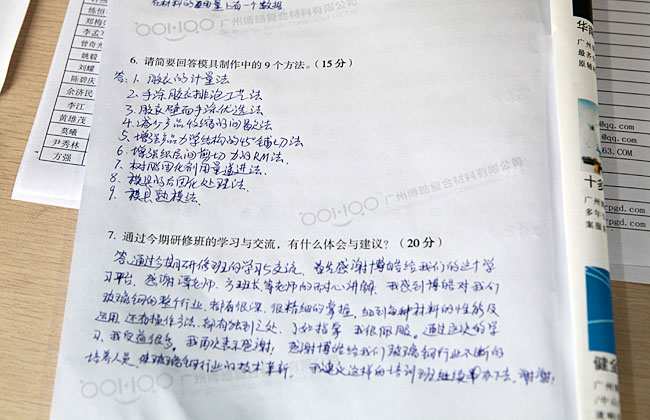 在材料的重量上有一个数据
6. 请简要回答模具制作中的 9 个方法。（15 分）
答：1. 胶衣的计量法
2. 手涂胶衣排泡工艺法
3. 胶衣壁面手涂优选法
4. 减少产品收缩的间歇法
5. 增强产品力学结构的45°铺切法
6. 增强织层间剪切力的RM法、
7. 树脂固化剂用量递进法、
8. 模具的后固化处理法、
9. 模具起模法、
广州博皓复合材料有限公司
7. 通过今期研修班的学习与交流，有什么体会与建议？（20 分）
答、通过今期研修班的学习与交流、首先感谢博皓给我们的这个学
习平台、感谢谭老师、方班长等老师的耐心讲解、我感到博皓对我们
玻璃钢的整个行业、都有很深、很精细的掌握、细到每种材料的性能及
运用、还有操作方法、都有独到之处、了如指掌、我很佩服。通过这次的学
习、我受益很多。我再次表示感谢！感谢博皓给我们玻璃钢行业不断的
培养人员、使玻璃钢行业的技术革新、我建议这样的培训班继续举办下去、谢谢！
陈恒
郑梅
曾奇
姚毅
刘耀
陈碧庆
余济民
李江
黄雄茂
莫曦
尹秀林
方强
广州博皓复合材料有限公司
@qq.com
qq.com
63.COM
rpgd.com
十多
多年
案服
健全
广州